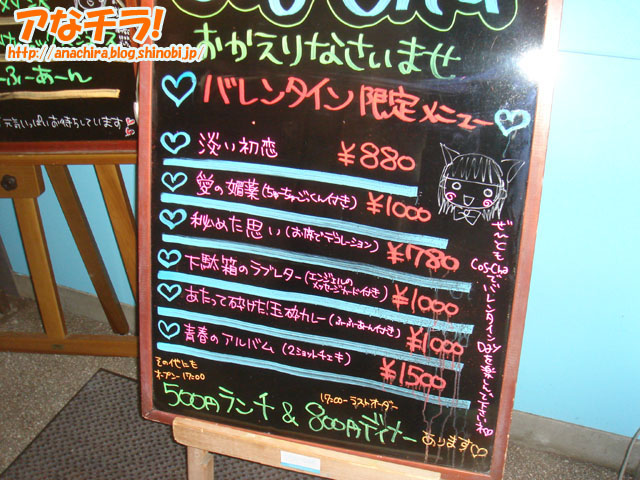 アなチラ!
http://anachira.blog.shinobi.jp/
ふーあーん
元気いっぱいお待ちしています
おかえりなさいませ
バレンタイン限定メニュー
淡い初恋 ¥880
愛の媚薬(ちゅーちゅーつくん付き) ¥1000
秘めた思い(お席でデコレーション) ¥1780
下駄箱のラブレター(エンジェルのメッセージカード付き) ¥1000
あたって砕けた玉砕カレー(ふーふーあーん付き) ¥1000
青春のアルバム(2ショットチェキ) ¥1500
ぜひともCosChaでバレンタインDayを楽しんで下さいね
その他にも
オープン-17:00
17:00-ラストオーダー
500円ランチ & 800円ディナーあります